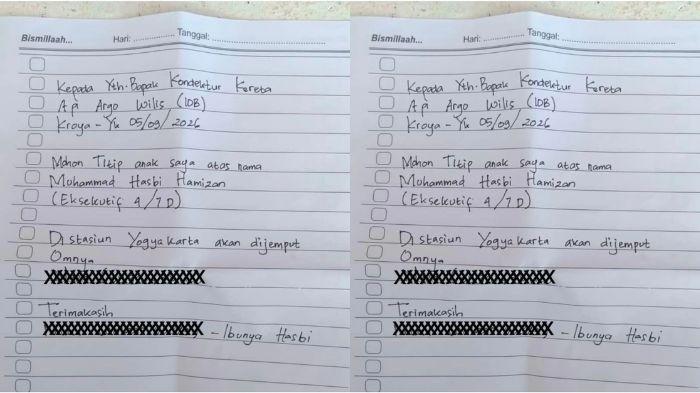 Bismillaah... Hari: ................ Tanggal: ................................
Kepada Yth. Bapak Kondektur Kereta
Api Argo Wilis (10B)
Kroya - Yk 05/09/2026
Mohon Titip anak saya atas nama
Muhammad Hasbi Hamizan
(Ekselcutif 4/7D)
Di stasiun Yogyakarta akan dijemput
Omnya
Terimakasih
- Ibunya Hasbi
Bismillaah... Hari: ................ Tanggal: ................................
Kepada Yth. Bapak Kondektur Kereta
Api Argo Wilis (10B)
Kroya - Yk 05/09/2026
Mohon Titip anak saya atas nama
Muhammad Hasbi Hamizan
(Ekselcutif 4/7D)
Di stasiun Yogyakarta akan dijemput
Omnya
Terimakasih
- Ibunya Hasbi